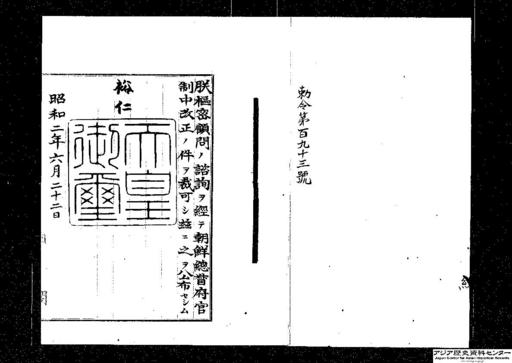 勅令第百九十三號
朕樞密顧問ノ諮詢ヲ經テ朝鮮總督府官
制中改正ノ件ヲ裁可シ玆ニ之ヲ公布セシム
裕仁
天皇
御璽
昭和二年六月二十二日
アジア歴史資料センター
Japan Center for Asian Historical Records